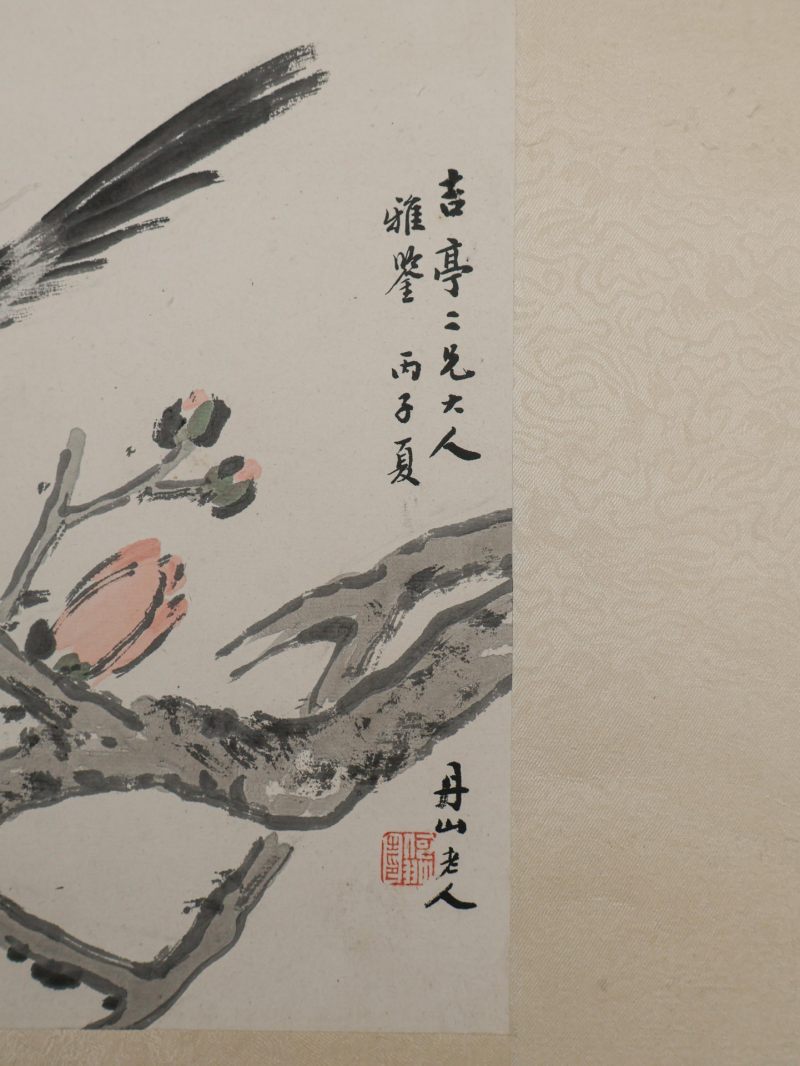 吉亭二兄大人
雅鑒 丙子夏
丹山老人